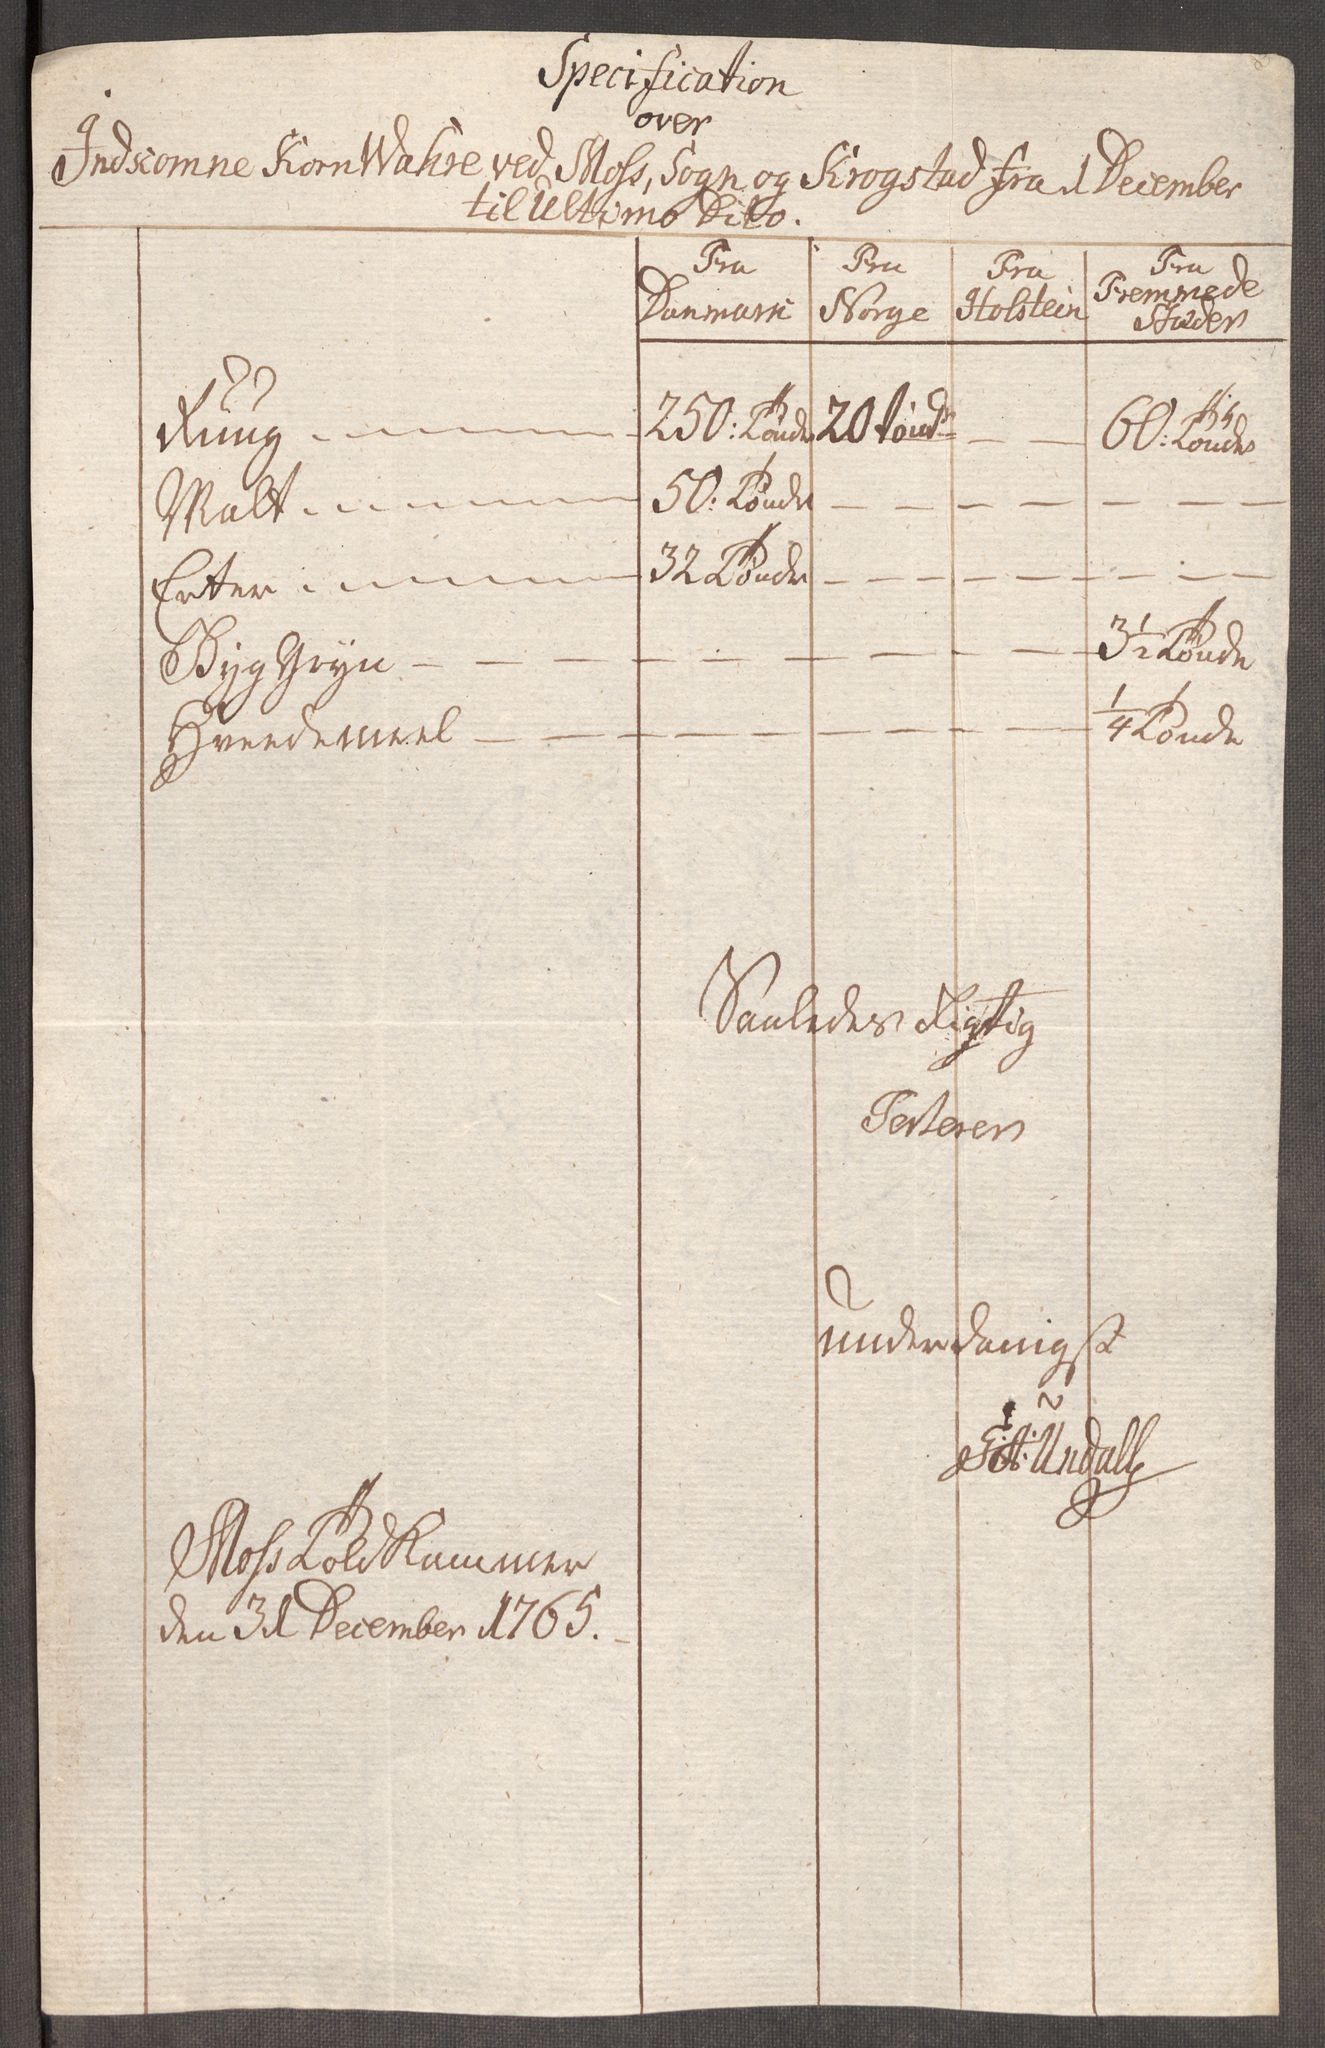 Specification
over
Indkomne Korn Wahre ved Moss, Sogn og Krogstad fra 1 December
til Ultimo Dito.
Fra Danmark Fra Norge Fra Holstein Fra Fremmede Stæder
Rúúg 250: Tønder 20 tønd 60: Tønder
Malt 50: Tønder
Erter 32 Tønder
Byg Gryn 3 1/2 Tønde
Hveedemeel 1/4 Tønde
Saaledes Rigtig
Testerer
Underdanigst
Undall
Moss Told Kammer
den 31 December 1765.